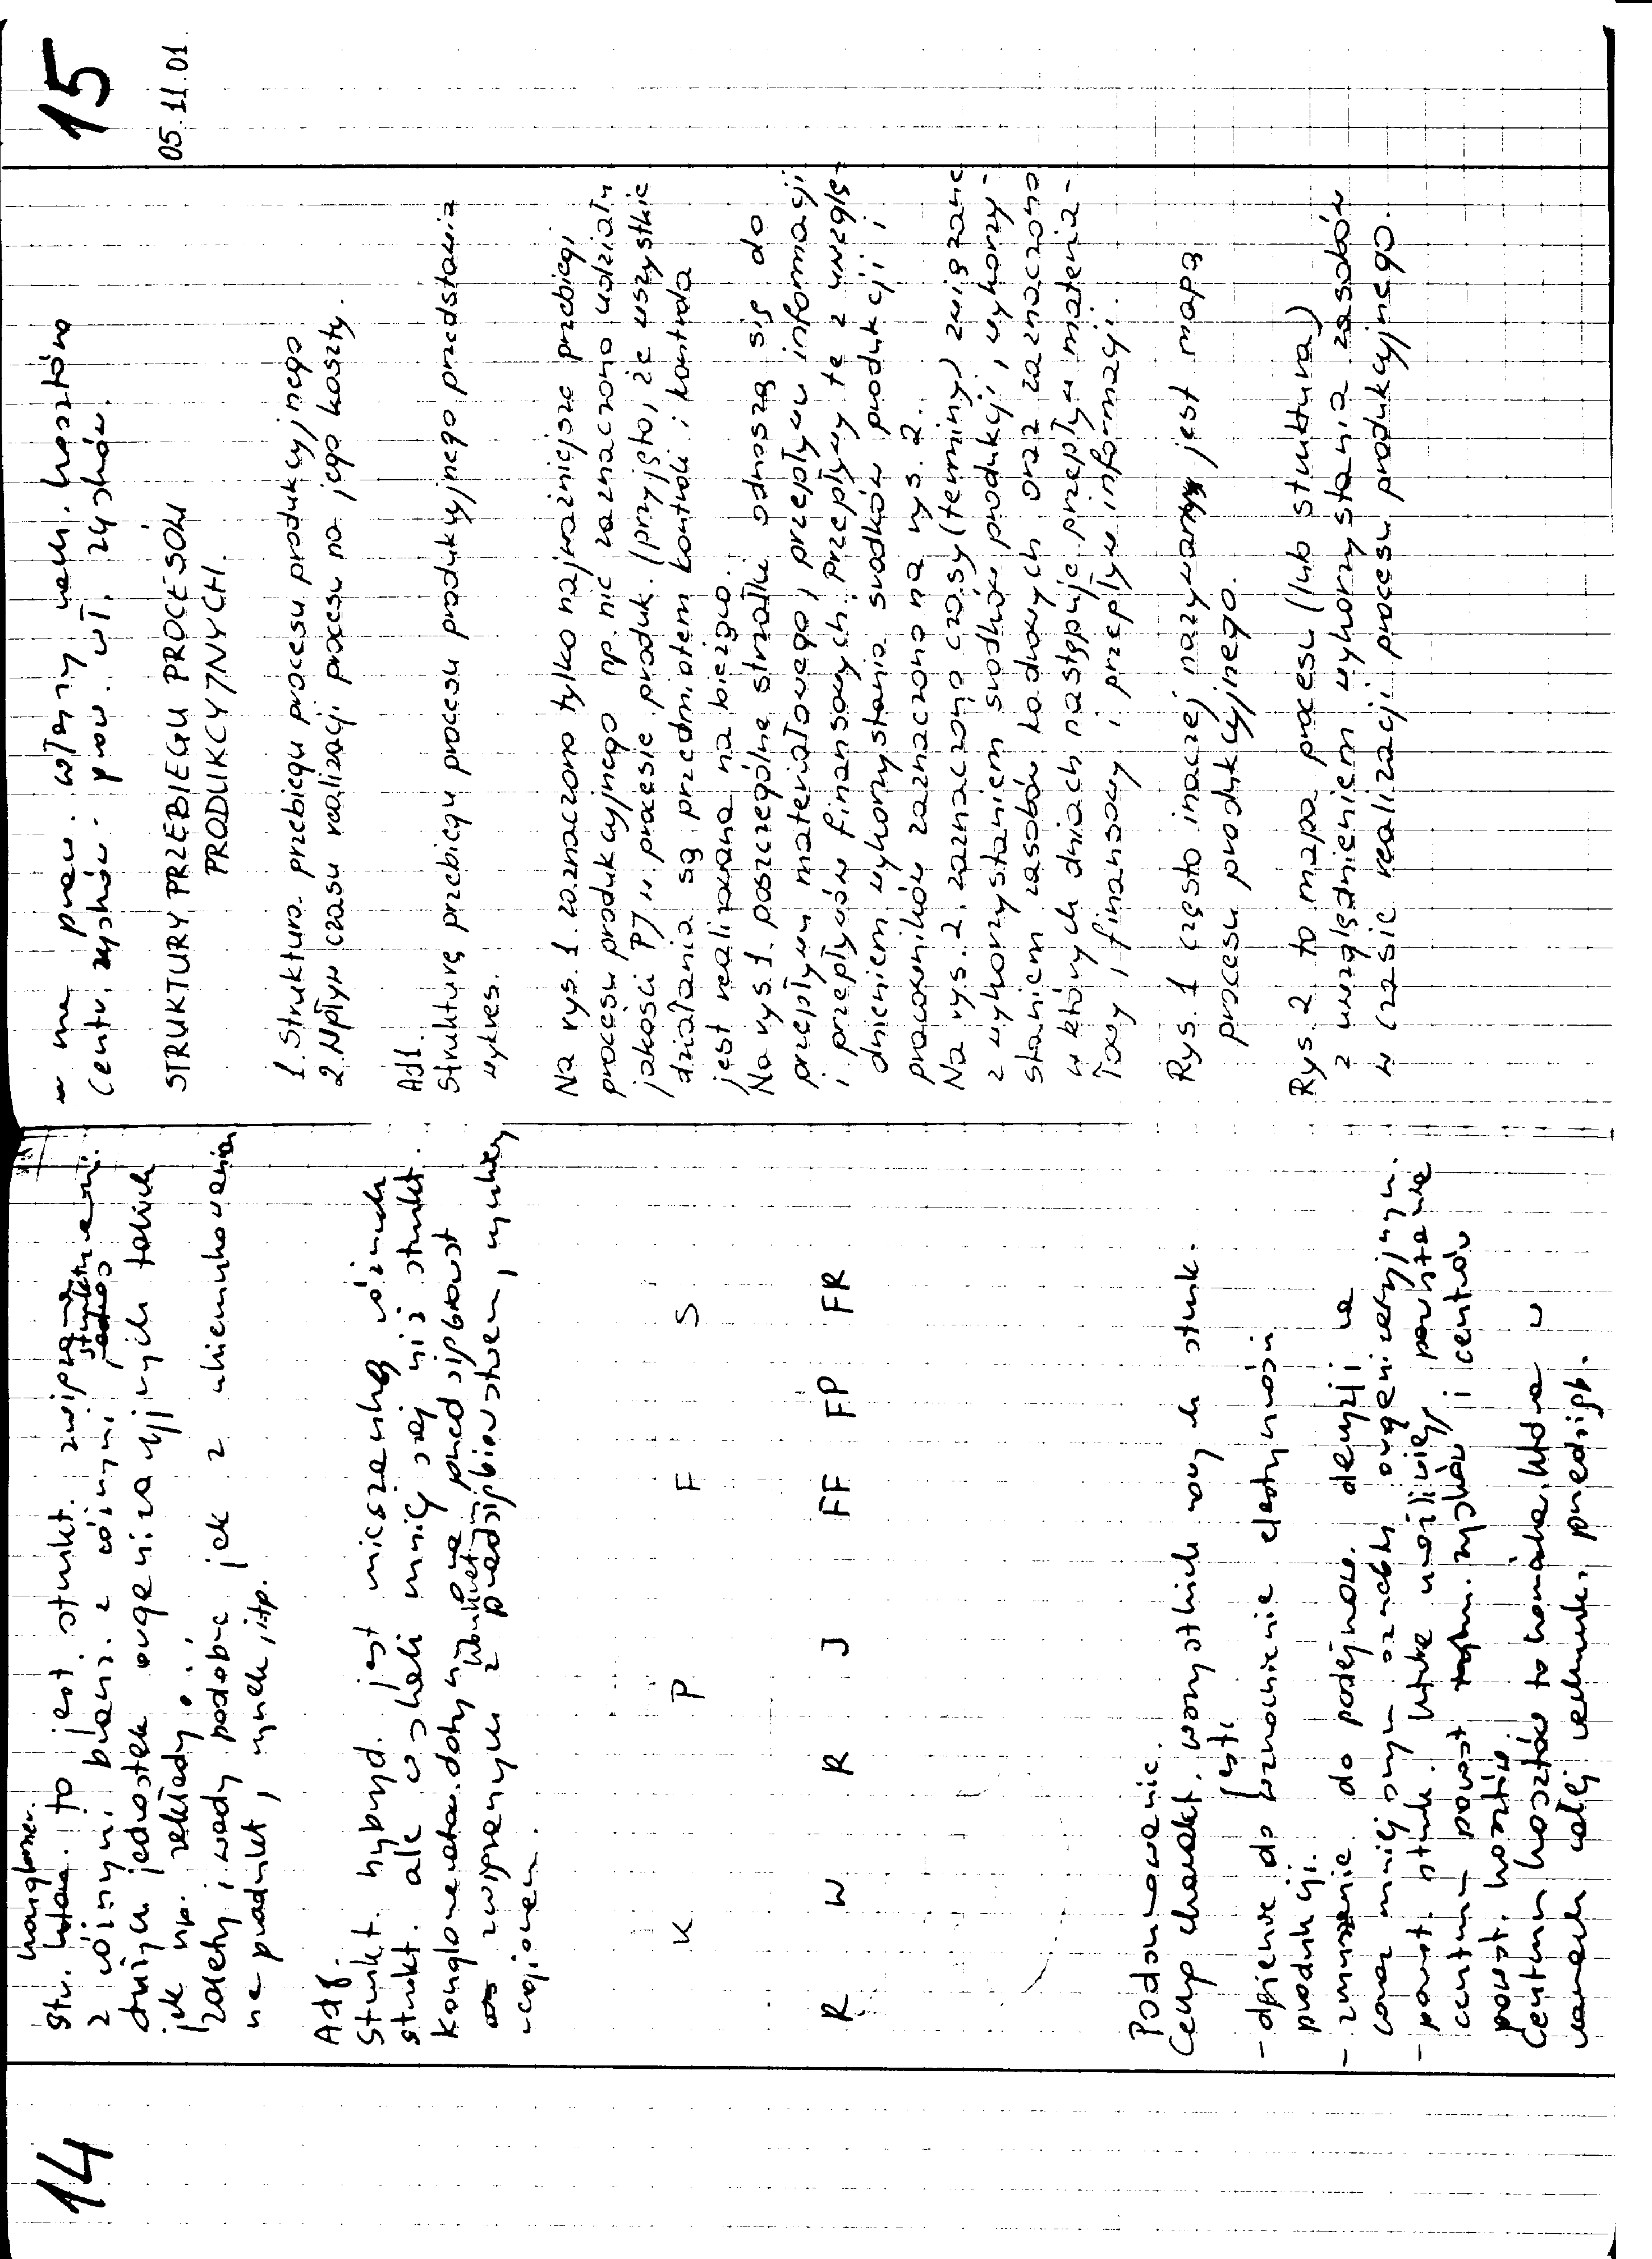 14
konglomer.
Stru. to jest strukt. związana
z różnymi branż. z różnymi
strukturami
dużych jednostek organizacyjnych takich
jak np. zakłady.
Zalety i wady podobne jak z ukierunkowania
na produkt, rynek, itp.
Ad 8.
Strukt. hybryd. jest mieszanką różnych
strukt. ale w skali mniejszej niż strukt.
konglomeratow. dotyczy ona przedsiębiorst
konkretnym
związanym z przedsiębiorstwem, rynkiem,
regionem.
K P F S
R W R J FF FP FR
Podsumowanie.
Cechy charakt. wszystkich nowych struk.
- dążenie do wzmocnienia elastyczności
produkcji.
- zmuszenie do podejmow. decyzji na
coraz niższym szczeblu organizacyjnym.
- powst. strukt. które umożliwiają powstanie
centrum zysków i centrów
powst. kosztów
Centrum kosztów to komórka, która w
ramach całej rachunk. przedsięb.
15
05.11.01.
ma praw. własny rach. kosztów
Centr. zysków - prow. wł. zysków.
STRUKTURY PRZEBIEGU PROCESÓW
PRODUKCYJNYCH.
1. Struktura przebiegu procesu produkcyjnego
2. Wpływ czasu realizacji procesu na jego koszty.
Ad 1.
Strukturę przebiegu procesu produkcyjnego przedstawia
wykres.
Na rys. 1 zaznaczono tylko najważniejsze przebiegi
procesu produkcyjnego np. nie zaznaczono udziału
jakości PJ w procesie produk. (przyjęto, że wszystkie
działania są przedmiotem kontroli i kontrola
jest realizowana na bieżąco.
Na rys. 1. poszczególne strzałki odnoszą się do
przepływu materiałowego, przepływu informacji
i przepływów finansowych, przepływy te z uwzglę-
dnieniem wykorzystania środków produkcji i
pracowników zaznaczono na rys. 2.
Na rys. 2. zaznaczono czasy (terminy) związane
z wykorzystaniem środków produkcji, wykorzy-
staniem zasobów kadrowych oraz zaznaczono
w których dniach następuje przepływ materia-
łowy, finansowy i przepływ informacji.
Rys. 1 często inaczej nazywany jest mapą
procesu produkcyjnego.
Rys. 2 to mapa procesu (lub struktura)
z uwzględnieniem wykorzystania zasobów
w czasie realizacji procesu produkcyjnego.